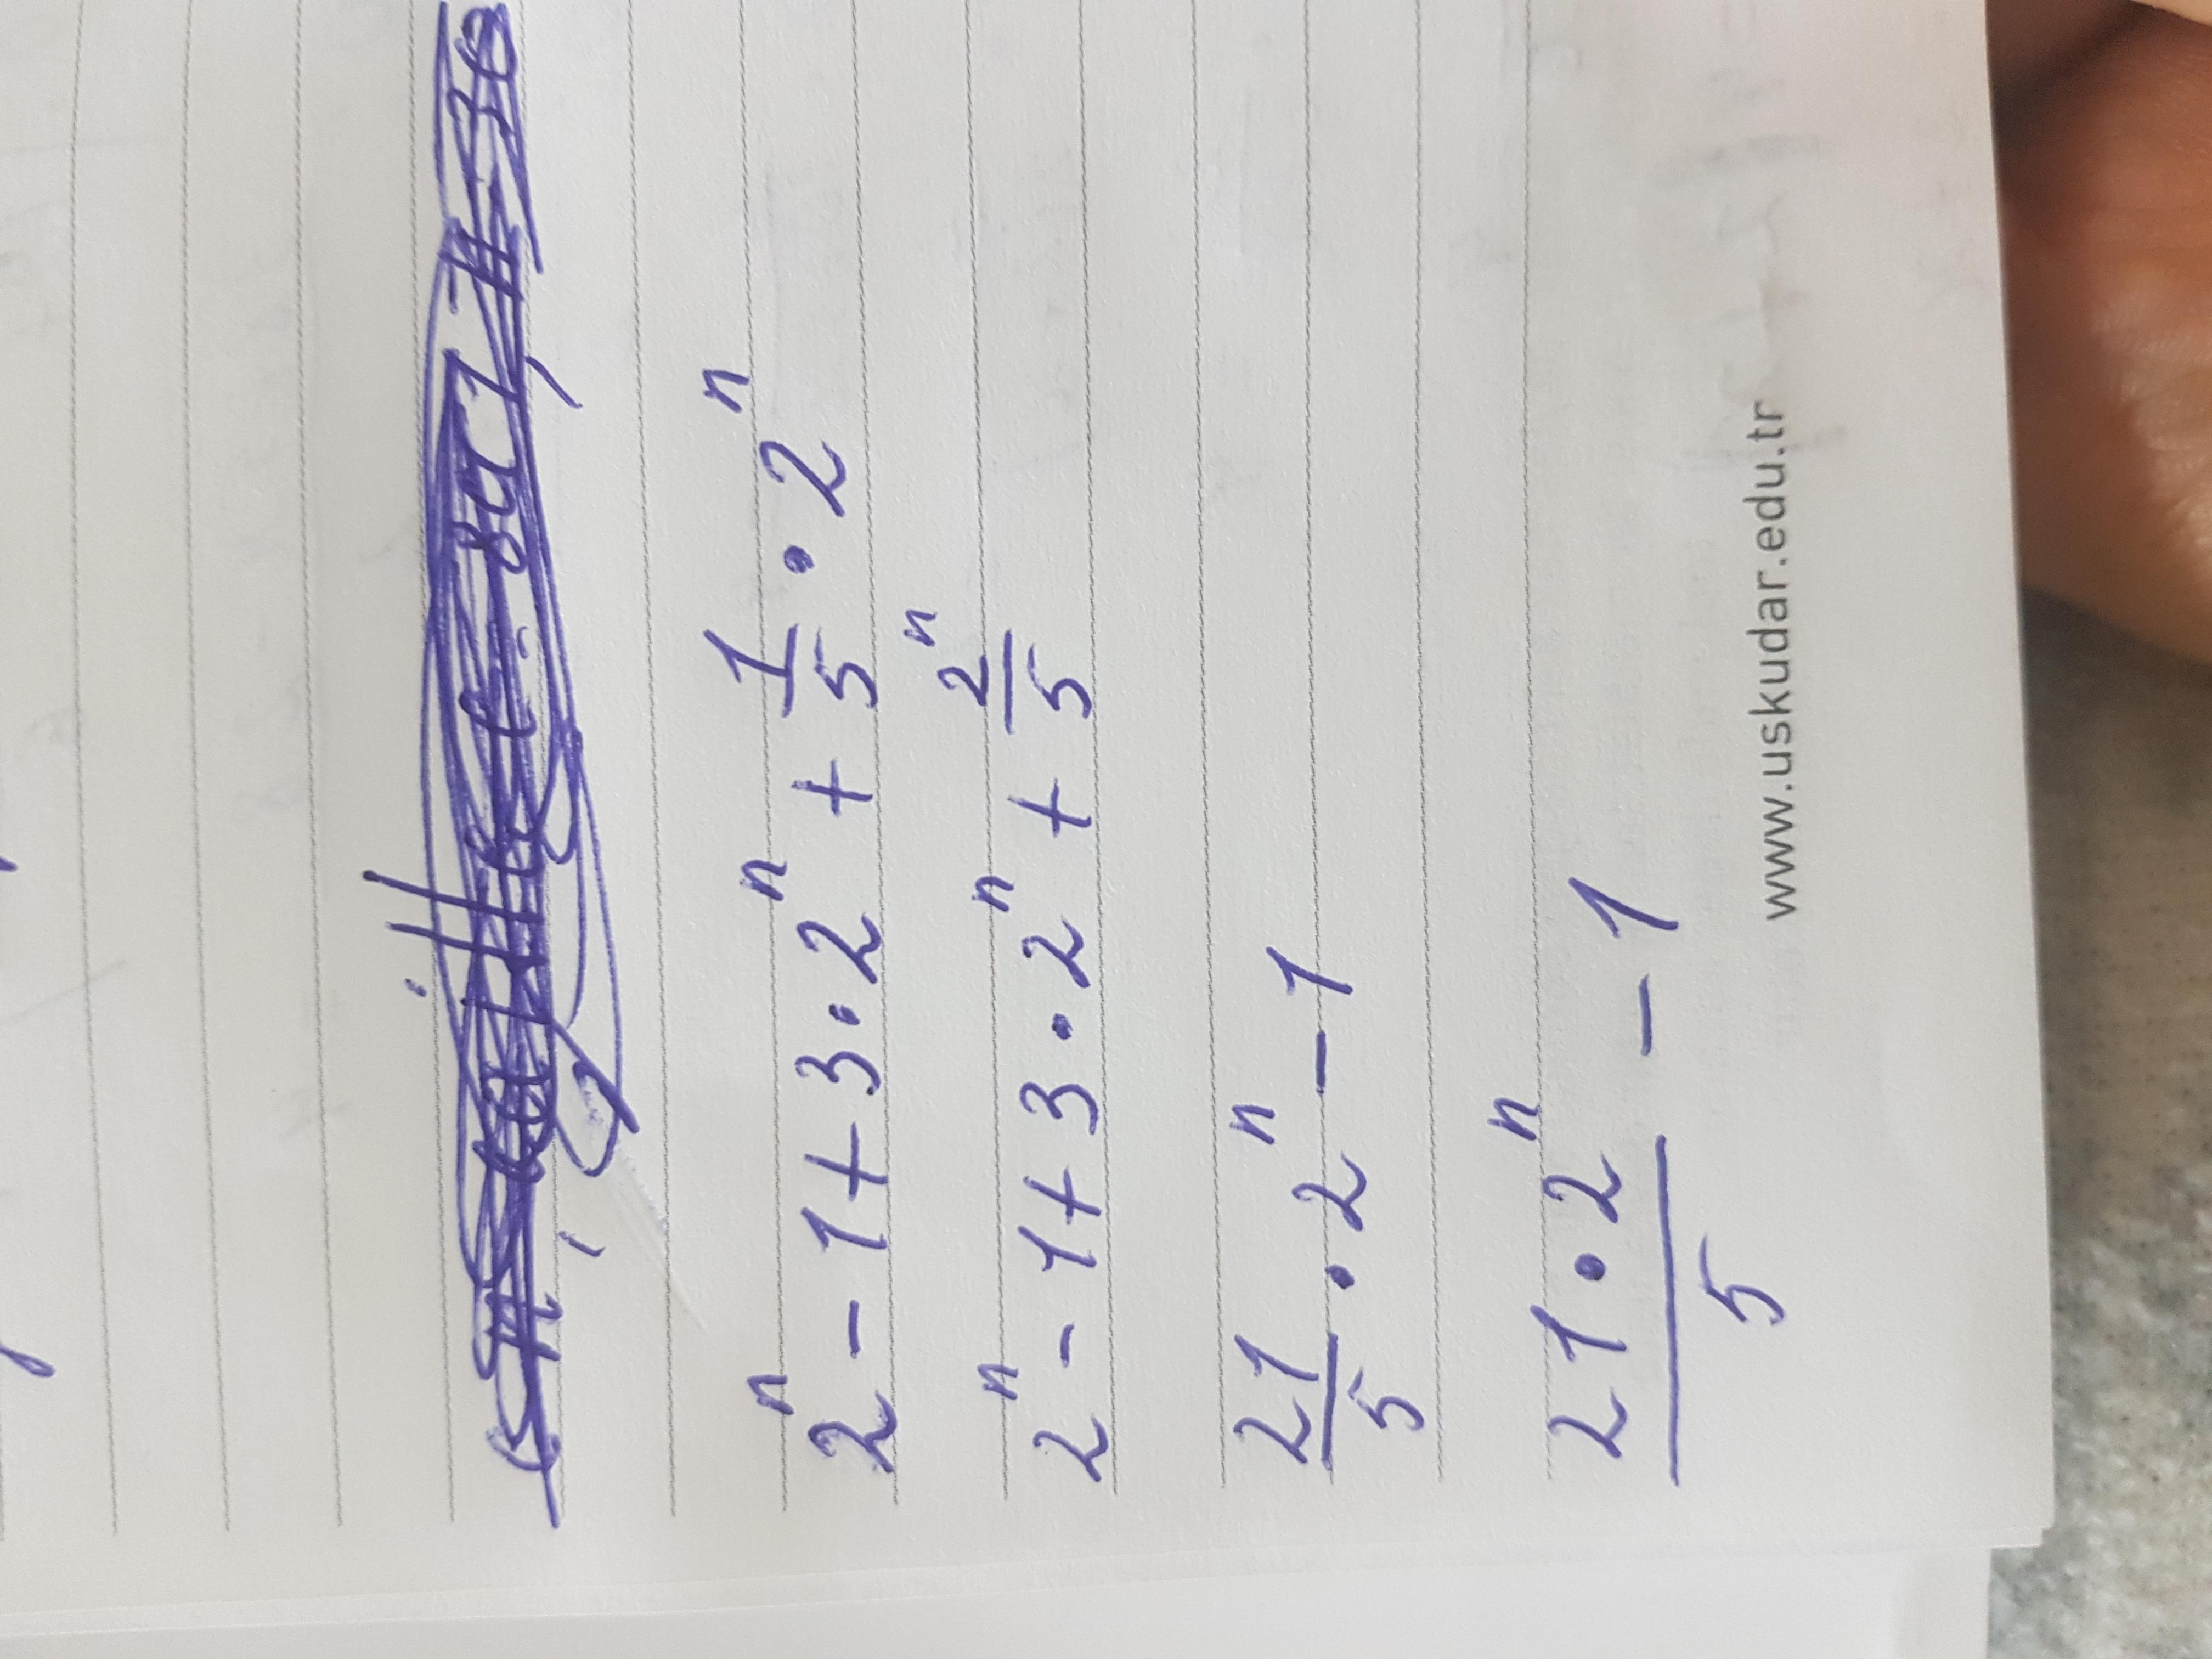 2ⁿ - 1 + 3 · 2ⁿ + 1/5 · 2ⁿ
2ⁿ - 1 + 3 · 2ⁿ + 2ⁿ/5
21/5 · 2ⁿ - 1
21 · 2ⁿ/5 - 1
www.uskudar.edu.tr